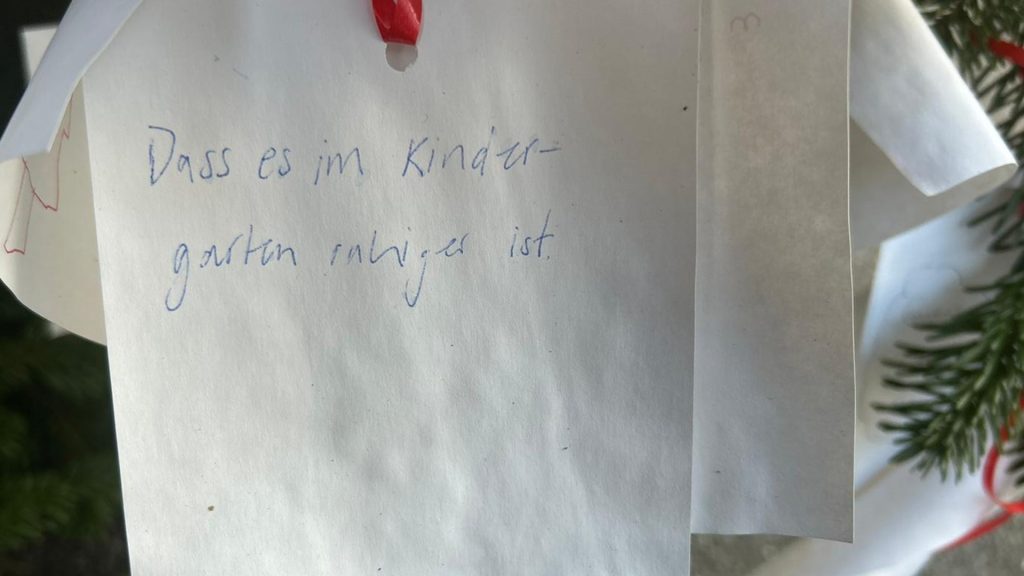 Dass es im Kinder-
garten ruhiger ist.
3